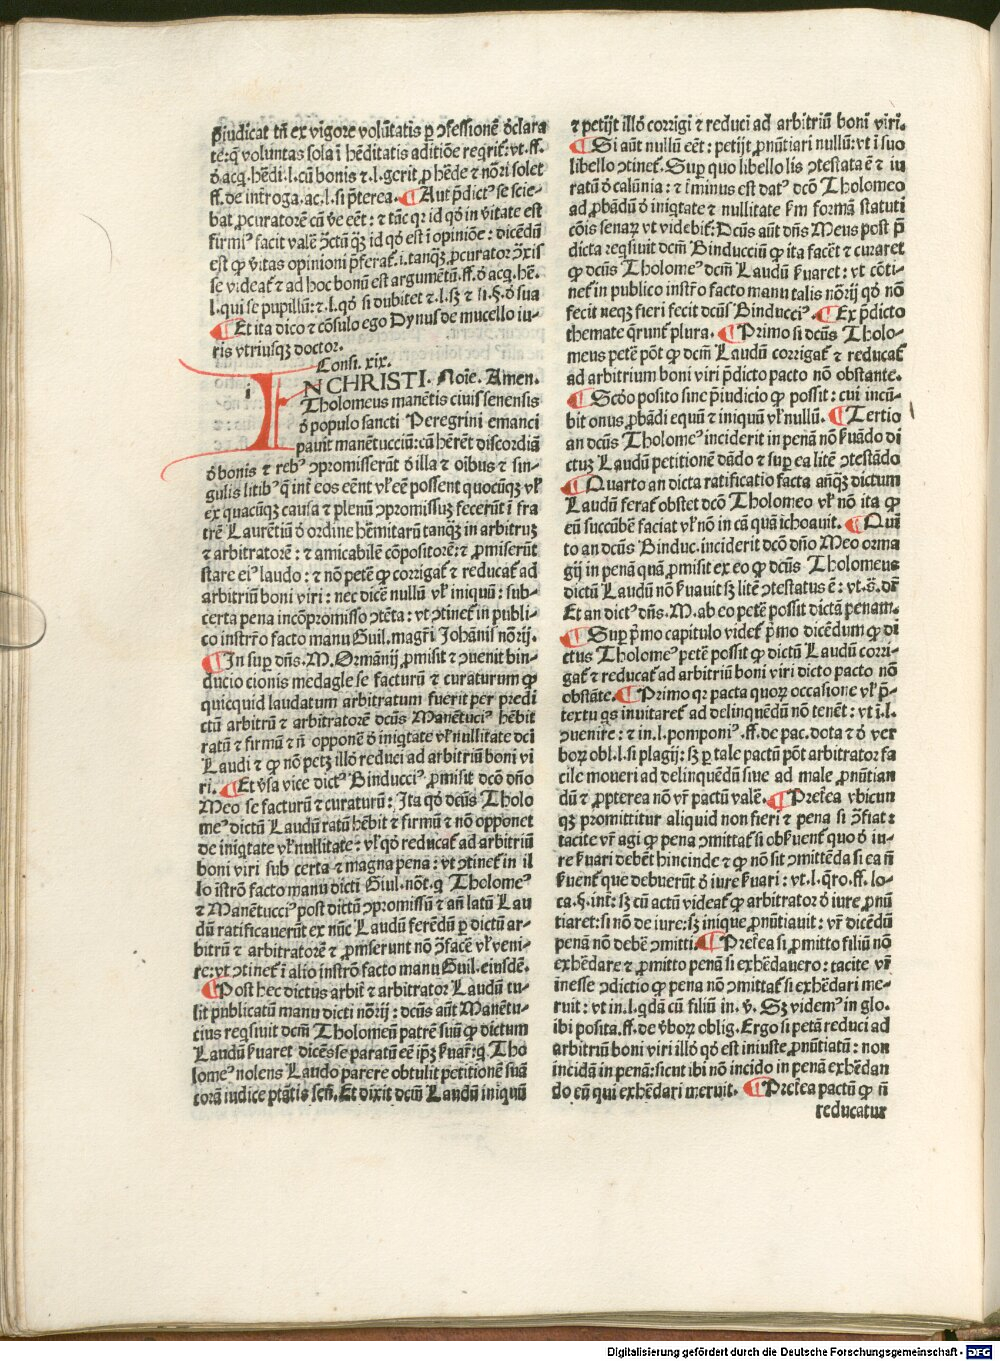 p̄iudicat tn̄ ex vigore volūtatis ꝑ ↄfessionē ꝺ̄clara
te: qꝫ voluntas sola ī hēditatis aditiōe reqrit̄: vt .ff.
ꝺ̄ acq. hēdi. l. cū bonis ⁊ .l. gerit ꝓ hēde ⁊ nōri solet
ff. de int̄roga. ac. l. si p̄terea. ¶ Aut p̄dictꝰ se scie-
bat ꝓcuratorē cū v̄e eēt: ⁊ tūc qr id qꝺ̄ in v̄itate est
firmiꝰ facit valē ↄ̄ctū qꝫ̄ id qꝺ̄ est ī opiniōe: dicēdū
est ꝙ v̄itas opinioni p̄ferat̄. i. tanqꝫ̄ ꝓcurator ↄ̄xis
se videat̄ ⁊ ad hoc bonū est argumētū. ff. ꝺ̄ acq. hē.
l. qui se pupillū: ⁊ .l. qꝺ̄ si dubitet ⁊ .l. sꝫ ⁊ si .§. ꝺ̄ sua
¶ Et ita dico ⁊ cōsulo ego Dynus de mucello iu-
ris vtriusqꝫ doctor.
Consi. xix.
i
IN CHRISTI. Noīe. Amen.
Tholomeus manētis ciuis senensis
ꝺ̄ populo sancti Peregrini emanci
pauit manētucciū: cū hēret̄ discordiā
ꝺ̄ bonis ⁊ rebꝰ ↄpromisserūt ꝺ̄ illa ⁊ oībus ⁊ sin-
gulis litibꝰ q̄ int̄ eos eēnt vl̄ eē possent quocūqꝫ vl̄
ex quacūqꝫ causa ⁊ plenū ↄpromissuꝫ fecerūt ī fra
trē Laurētiū ꝺ̄ ordine hēmitarū tanqꝫ̄ in arbitruꝫ
⁊ arbitratorē: ⁊ amicabilē cōpositorē: ⁊ ꝓmiserūt
stare eiꝰ laudo: ⁊ nō petē ꝙ corrigat̄ ⁊ reducat̄ ad
arbitriū boni viri: nec dicē nullū vl̄ iniquū: sub-
certa pena incōpromisso ↄtēta: vt ↄtinet̄ in publi-
co instr̄o facto manu Guil. magr̄i Johānis nōrij.
¶ In sup dn̄s. M. Ormānij ꝓmisit ⁊ ↄuenit bin-
ducio cionis medagle se facturū ⁊ curaturum ꝙ
quicquid laudatum arbitratum fuerit per predi
ctū arbitrū ⁊ arbitratorē dcūs Manētuciꝰ hēbit
ratū ⁊ firmū ⁊ n̄ opponē ꝺ̄ iniqtate vl̄ nullitate dci
Laudi ⁊ ꝙ nō petꝫ illō reduci ad arbitriū boni vi
ri. ¶ Et v̄sa vice dictꝰ Binducciꝰ ꝓmisit dcō dn̄o
Meo se facturū ⁊ curaturū: Ita qꝺ̄ dcūs Tholo
meꝰ dictū Laudū ratū hēbit ⁊ firmū ⁊ nō opponet
de iniqtate vl̄ nullitate: vl̄ qꝺ̄ reducat̄ ad arbitriū
boni viri sub certa ⁊ magna pena: vt ↄtinet̄ in il
lo īstrō facto manu dicti Giul. nōt. q Tholomeꝰ
⁊ Manētucciꝰ post dictū ↄpromissū ⁊ an̄ latū Lau
dū ratificauerūt ex nūc Laudū ferēdū ꝑ dictū ar-
bitrū ⁊ arbitratorē ⁊ ꝓmserunt nō ↄ̄facē vl̄ veni-
re: vt ↄtinet̄ ī alio instrō facto manu Guil. eiusdē.
¶ Post hec dictus arbit̄ ⁊ arbitrator Laudū tu-
lit publicatū manu dicti nōrij: dcūs aūt Manētu-
cius reqsiuit dcm̄ Tholomeū patrē suū ꝙ dictum
Laudū ẜuaret dicēs se paratū eē ip̄ꝫ ẜuar̄: q̄ Tho
lomeꝰ nolens Laudo parere obtulit petitionē suā
corā iudice ptātis sen̄. Et dixit dcm̄ Laudū iniquū
⁊ petijt illō corrigi ⁊ reduci ad arbitriū boni viri.
¶ Si aūt nullū eēt: petijt ꝓnūtiari nullū: vt ī suo
libello ↄtinet̄. Suꝑ quo libello lis ↄtestata ē ⁊ iu
ratū ꝺ̄ calūnia: ⁊ īminus est datꝰ dcō Tholomeo
ad ꝓbādū ꝺ̄ iniqtate ⁊ nullitate ẜm formā statuti
cōis senaꝝ vt videbit̄: Dcūs aūt dn̄s Meus post p̄
dicta reqsiuit dcm̄ Binducciū ꝙ ita facēt ⁊ curaret
ꝙ dcūs Tholomeꝰ dcm̄ Laudū ẜuaret: vt cōti-
net̄ in publico instr̄o facto manu talis nōrij qꝺ̄ nō
fecit neqꝫ fieri fecit dcūs Binducciꝰ. ¶ Ex p̄dicto
themate q̄runt̄ plura. ¶ Primo si dcūs Tholo-
meus petē pōt ꝙ dcm̄ Laudū corrigat̄ ⁊ reducat̄
ad arbitrium boni viri p̄dicto pacto nō obstante.
¶ Scꝺ̄o posito sine p̄iudicio ꝙ possit: cui incū-
bit onus ꝓbādi equū ⁊ iniquū vl̄ nullū. ¶ Tertio
an dcūs Tholomeꝰ inciderit in penā nō ẜuādo di
ctuꝫ Laudū petitionē dādo ⁊ suꝑ ea litē ↄtestādo
¶ Quarto an dicta ratificatio facta an̄qꝫ dictum
Laudū ferat̄ obstet dcō Tholomeo vl̄ nō ita ꝙ
eū succūbē faciat vl̄ nō in cā quā īchoauit. ¶ Quī
to an dcūs Binduc. inciderit dcō dn̄o Meo orma
gij in penā quā ꝓmisit ex eo ꝙ dcūs Tholomeus
dictū Laudū nō ẜuauit sꝫ litē ↄtestatus ē: vt .s̄. dr̄
Et an dictꝰ dn̄s. M. ab eo petē possit dictā penam.
¶ Suꝑ p̄mo capitulo videt̄ p̄mo dicēdum ꝙ di
ctus Tholomeꝰ petē possit ꝙ dictū Laudū corri-
gat̄ ⁊ reducat̄ ad arbitriū boni viri dicto pacto nō
obstāte. ¶ Primo qr pacta quoꝝ occasione vl̄ p̄-
textu qs inuitaret̄ ad delinquēdū nō tenēt: vt ī .l.
ↄuenire: ⁊ in .l. pomponiꝰ .ff. de pac. dota ⁊ ꝺ̄ ver
boꝝ obl. l. si plagij: sꝫ ꝑ tale pactū pōt arbitrator fa
cile moueri ad delinquēdū siue ad male ꝓnūtian
dū ⁊ ꝓpterea nō vr̄ pactū valē. ¶ Pret̄ea vbicun
qꝫ promittitur aliquid non fieri ⁊ pena si ↄ̄fiat:
tacite vr̄ agi ꝙ pena ↄmittat̄ si obẜuent̄ quo ꝺ̄ iu-
re ẜuari debēt hincinde ⁊ ꝙ nō sit ↄmittēda si ea n̄
ẜuent̄ que debuerūt ꝺ̄ iure ẜuari: vt .l. q̄ro. ff. lo-
ca. §. int̄: sꝫ cū actū videat̄ ꝙ arbitrator ꝺ̄ iure ꝓnū
tiaret: si nō de iure: sꝫ inique ꝓnūtiauit: vr̄ dicēdū
penā nō debē ↄmitti. ¶ Pret̄ea si ꝓmitto filiū nō
exhēdare ⁊ ꝓmitto penā si exhēdauero: tacite vr̄
inesse ↄdictio ꝙ pena nō ↄmittat̄ si exhēdari me-
ruit: vt in .l. qdā cū filiū in. v̄. Sꝫ videmꝰ in glo.
ibi posita. ff. de v̄boꝝ oblig. Ergo si petā reduci ad
arbitriū boni viri illō qꝺ̄ est iniuste ꝓnūtiatū: non
incidā in penā: sicut ibi nō incido in penā exhēdan
do eū qui exhēdari meruit. ¶ Pret̄ea pactū ꝙ n̄
reducatur
Digitalisierung gefördert durch die Deutsche Forschungsgemeinschaft - DFG